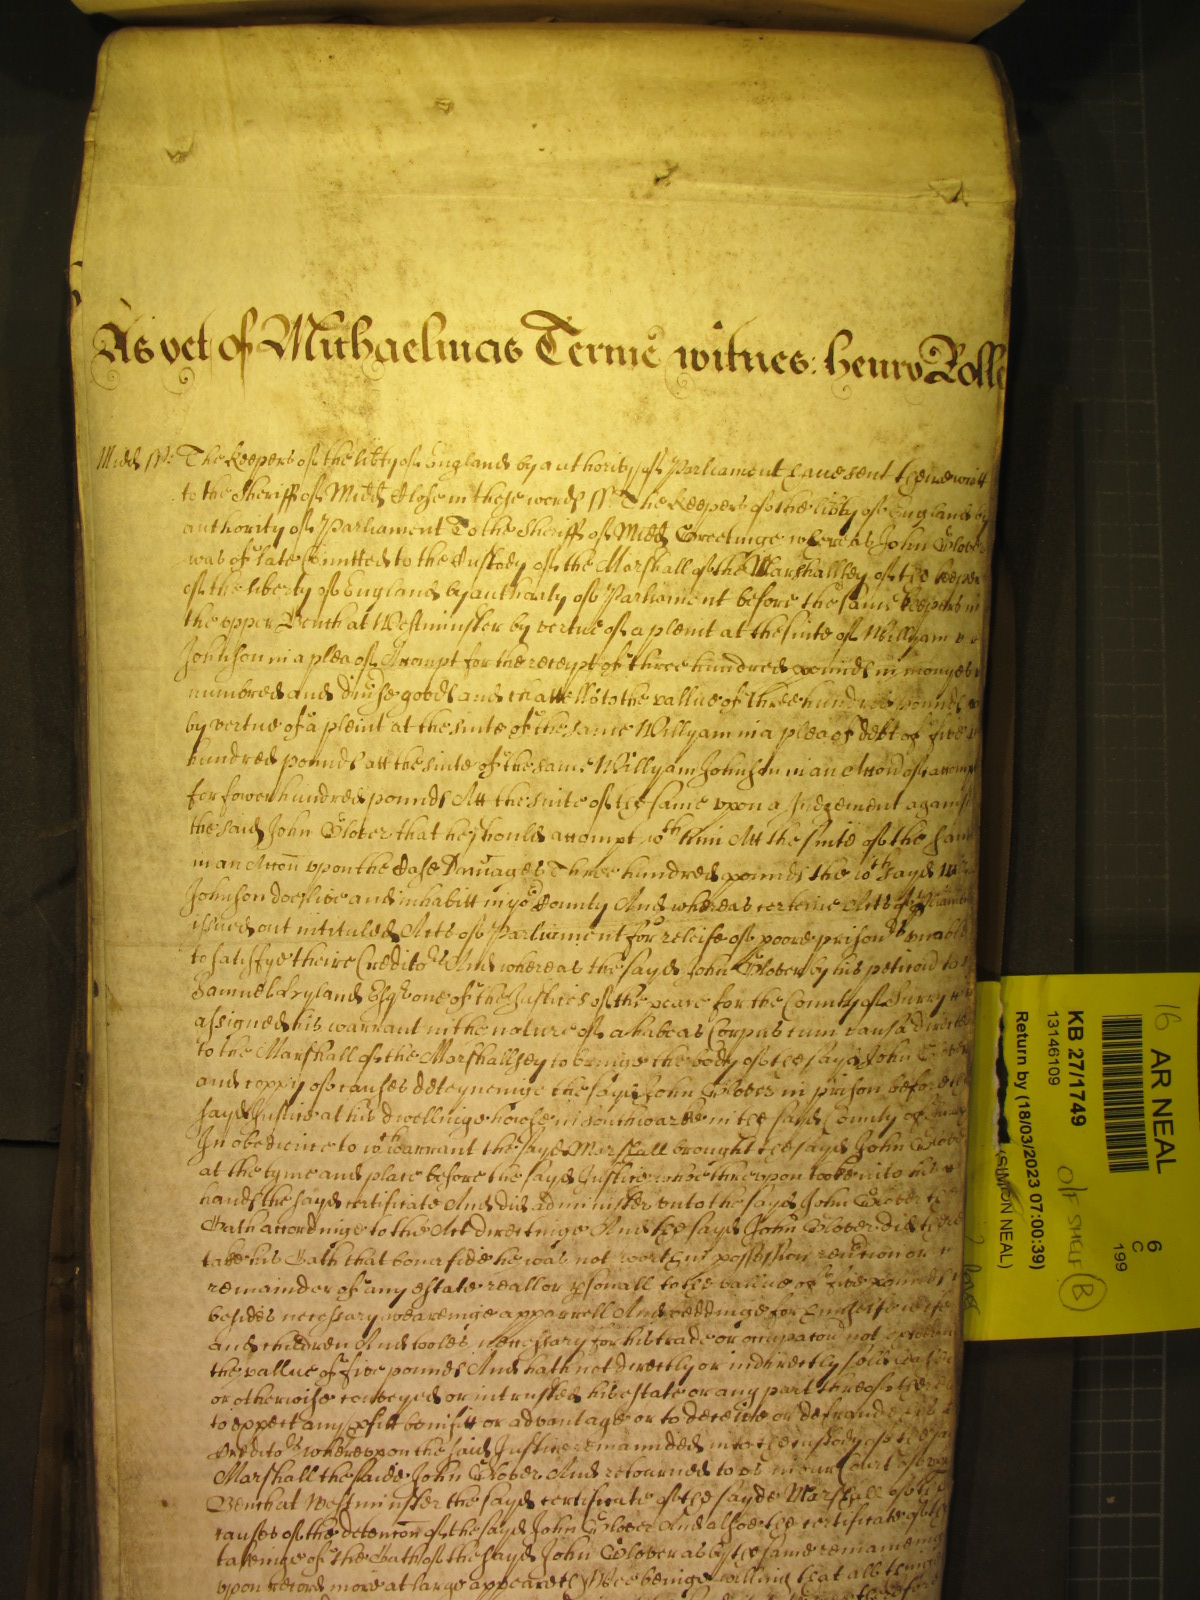 As yet of Michaelmas Terme witnes: Henry Rolle
Midd ss: The keepers of the libty of England by authority of Parliament have sent there writt
to the Sheriff of Midd Close in these words ss: The Keepers of the libty of England by
authority of Parliament To the Sheriff of Midd Greetinge whereas John Glover
was of late Comitted to the Custody of the Marshall of the Marshallsey of the keepers
of the liberty of England by authority of Parliament before the same keepers in
the upper Bench at Westminster by vertue of a pleint at the suite of Willyam
Johnson in a plea of Accompt for the receypt of three hundred pounds in monyes
numbred and divse goods and chattells to the vallue of three hundred pounds
by vertue of a pleint at the suite of the same Willyam in a plea of debt of five
hundred pounds att the suite of the same Willyam Johnson in an Accon of accompt
for fower hundred pounds Att the suite of the same upon a Judgement against
the said John Glover that he should accompt wth him Att the suite of the same
in an Accon upon the Case Damages Three hundred pounds the wch sayd Wm
Johnson doe live and inhabitt in yor County And whereas certeine Acts of Parliament
issued out intituled Acts of Parliament for releife of poore prisonrs unable
to satisfye theire Creditors And whereas the sayd John Glover by his peticon to
Samuel Hyland Esqr one of the Justices of the peace for the County of Surry
assigned his warrant in the nature of a habeas Corpus cum causa directed
to the Marshall of the Marshallsey to bringe the body of the sayd John Glover
and coppy of causes deteyneinge the sayd John Glover in prison before the
sayd Justice at his dwellinge howse in Southwarke in the sayd County of Surry
In obedience to wch warrant the sayd Marshall brought the sayd John Glover
at the tyme and place before the sayd Justice whoe thereupon tooke into his
hands the sayd certificate And did administer unto the sayd John Glover the
Oath accordinge to the Act directinge And the sayd John Glover did there
take his Oath that bona fide he was not worth in possession revercon or
remainder of any estate reall or psonall to the vallue of five pounds
besides necessary weareinge apparrell And beddinge for himselfe wife
and children And tooles necessary for his trade or occupacon not exceeding
the vallue of five pounds And hath not directly or indirectly sold leased
or otherwise conveyed or intrusted his estate or any part thereof thereby
to expect any pfitt benifitt or advantage or to deceive or defraude his
Creditors whereupon the said Justice remannded into the custody of the said
Marshall the saide John Glover And retourned to us in our Court of upper
Bench at Westminster the sayd certificate of the sayde Marshall of the
causes of the detencon of the sayd John Glover And alsoe the certificate of the
takeinge of the Oath of the sayd John Glover as by the same remaineing
upon record more at large appeareth Wee being willing that all things
16 AR NEAL
6
C
199
KB 27/1749
13146109
Return by (18/03/2023 07:00:39)
(SIMON NEAL)
O/F SHELF (B)